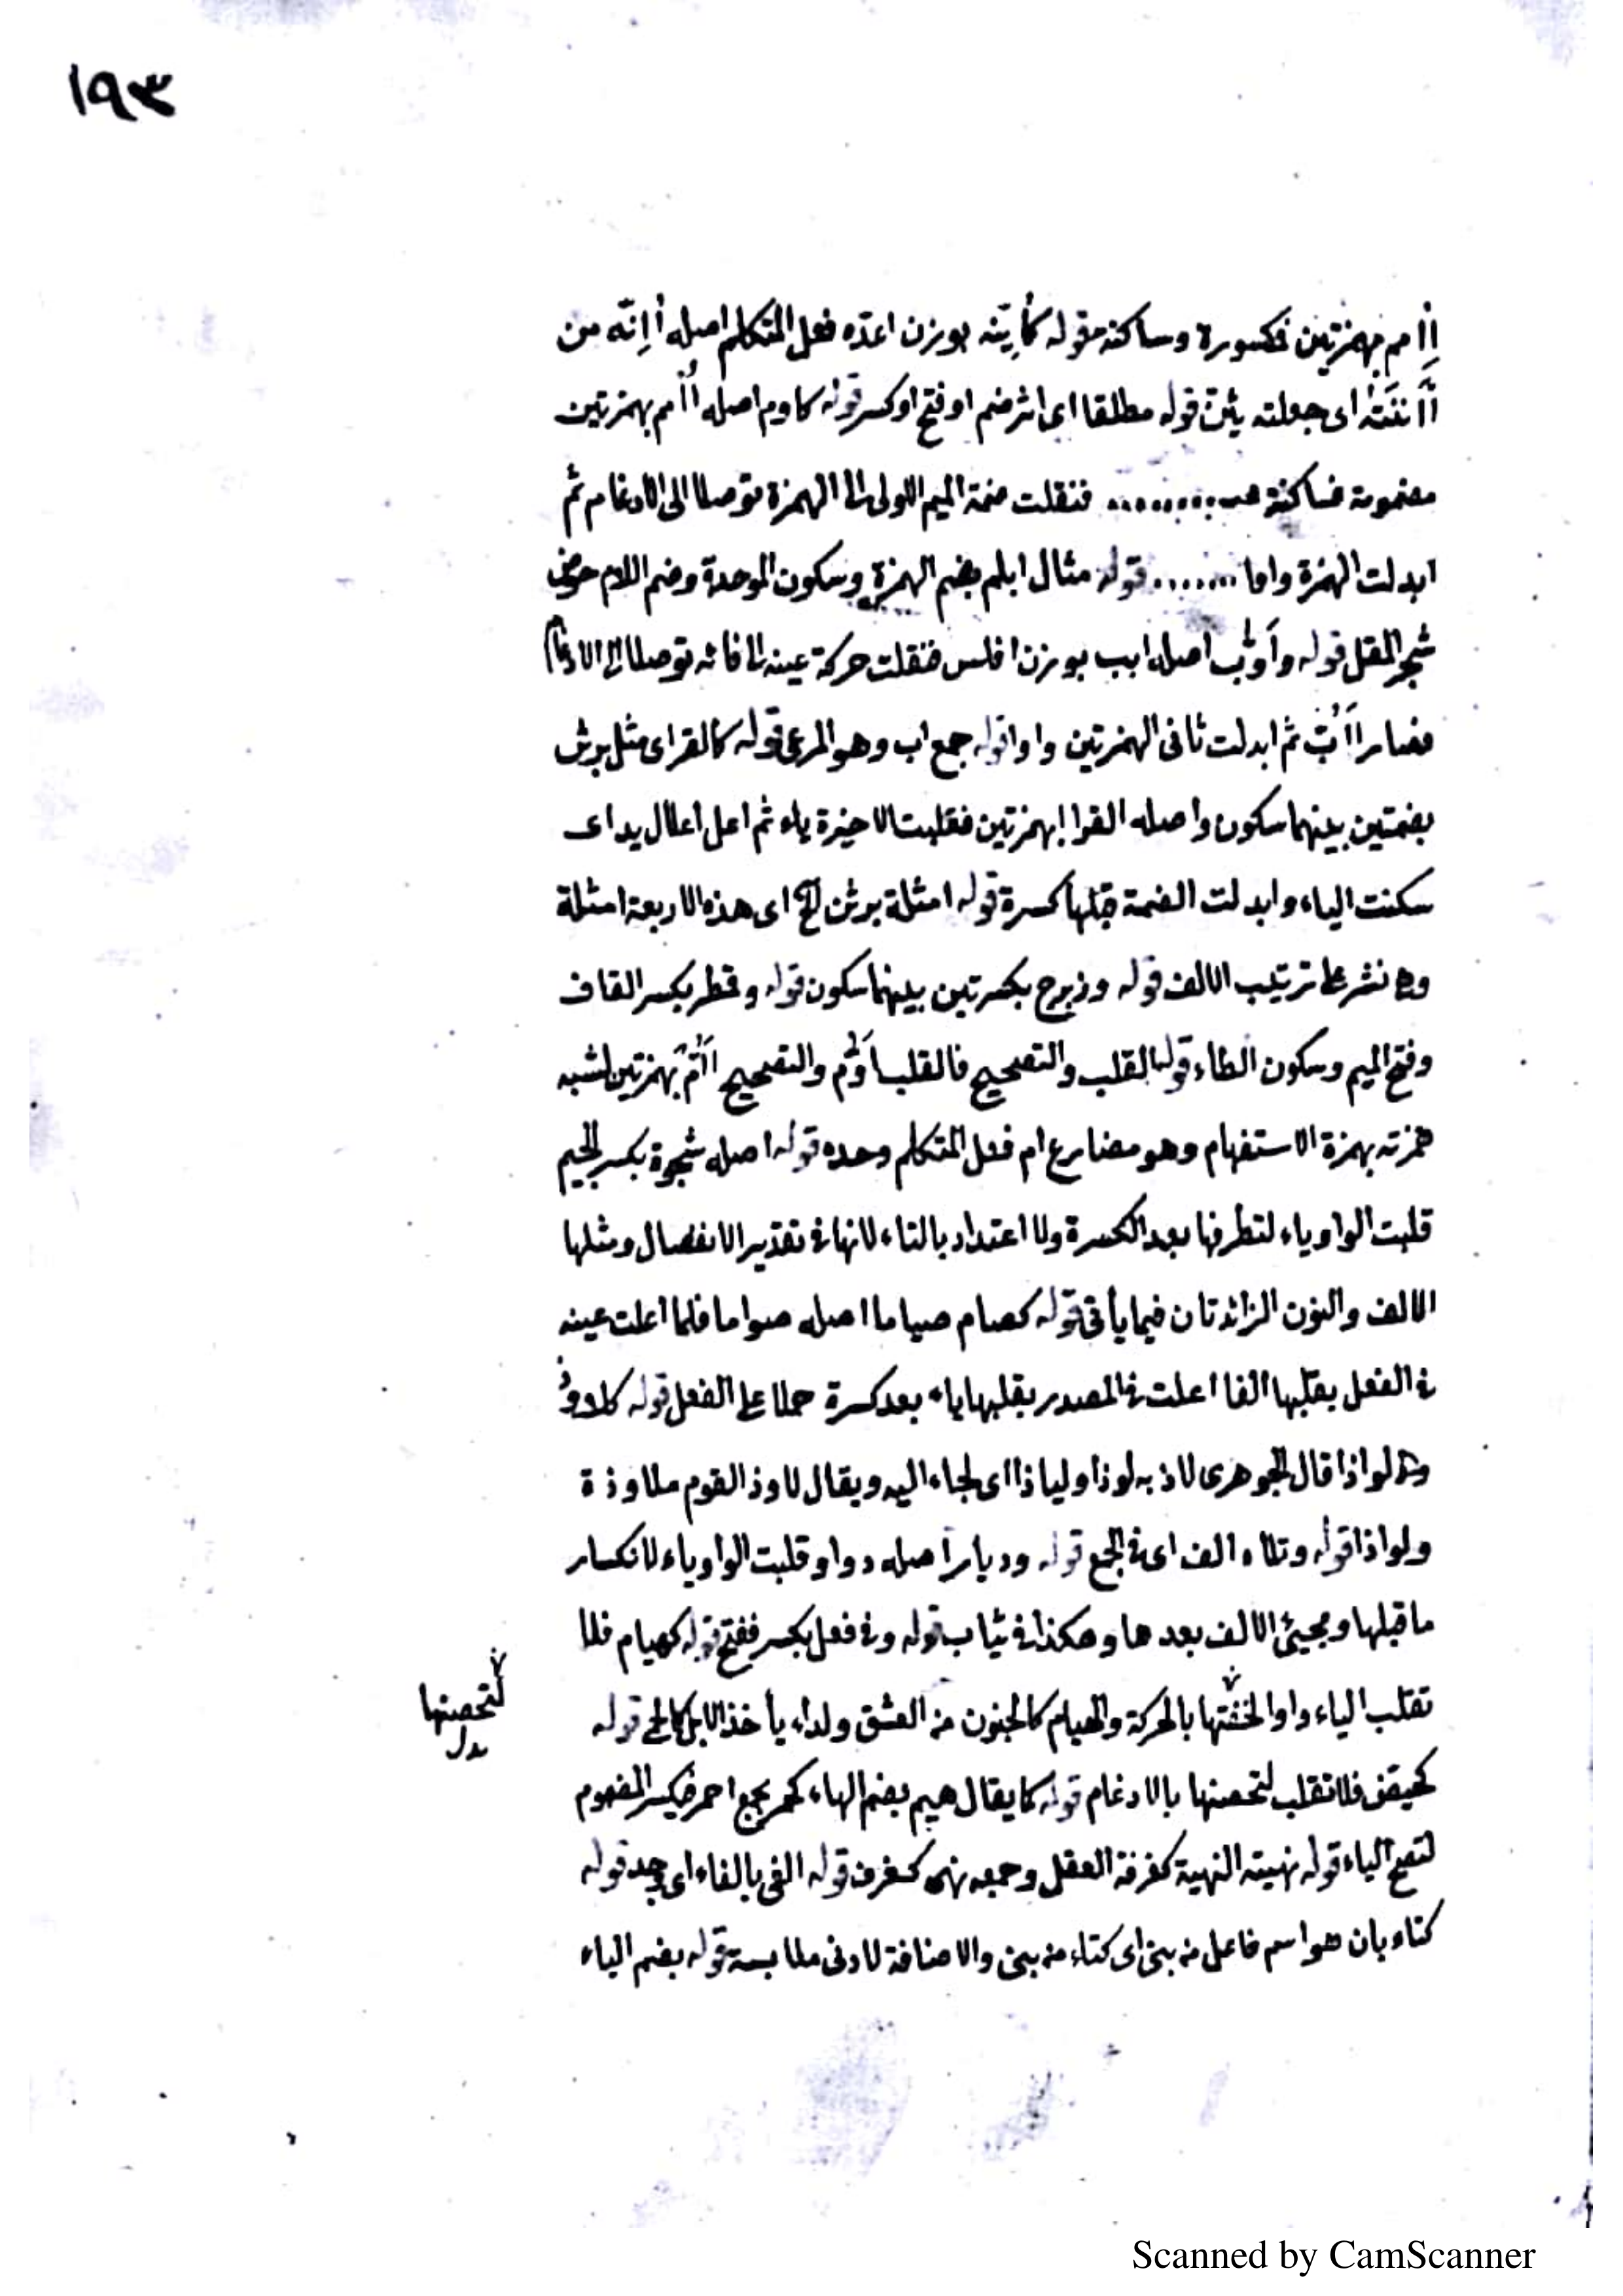 ١٩٣
اِاْمم بهمزتين فمكسورة وساكنة قوله كأينّه بوزن اعدّه فعل المتكلم اصله أاِنّه من
أَأْنَنْتُه اى جعلته يئنّ قوله مطلقا اى اثر ضم او فتح او كسر قوله كاوم اصله أُاْمم بهمزتين
مضمومة فساكنة ......... فنقلت ضمة الميم الاولى الى الهمزة توصلا الى الادغام ثم
ابدلت الهمزة واما ....... قوله مثال ابلم بضم الهمزة وسكون الموحدة وضم اللام خوص
شجر المقل قوله وأَوُبّ اصله اابب بوزن افلس فنقلت حركة عينه الى فائه توصلا الى الادغام
فصار اَاُبّ ثم ابدلت ثانى الهمزتين واوا قوله جمع اب وهو المرعى قوله كالقراى مثل برثن
بضمتين بينهما سكون واصله القراا بهمزتين فقلبت الاخيرة ياء ثم اعل اعلال يد اى
سكنت الياء وابدلت الضمة قبلها كسرة قوله امثلة برثن الخ اى هذه الاربعة امثلة
وها نشر على ترتيب الالف قوله وزبرج بكسرتين بينهما سكون قوله وقمطر بكسر القاف
وفتح الميم وسكون الطاء قوله القلب والتصحيح فالقلب اَوُمّ والتصحيح اَاُمّ بهمزتين لشبه
همزته بهمزة الاستفهام وهو مضارع ام فعل المتكلم وحده قوله اصله شجوة بكسر الجيم
قلبت الواو ياء لتطرفها بعد الكسرة ولا اعتداد بالتاء لانها فى تقدير الانفصال ومثلها
الالف والنون الزائدتان فيما يأتى قوله كصام صياما اصله صواما فلما اعلت عينه
فى الفعل بقلبها الفا اعلت فى المصدر بقلبها ياء بعد كسرة حملا على الفعل قوله كلاوذ
لواذا قال الجوهرى لاذ به لوذا ولياذا اى لجاء اليه ويقال لاوذ القوم ملاوذة
ولواذا قوله وتلاه الف اى فى الجمع قوله وديار اصله دواو قلبت الواو ياء لانكسار
ما قبلها ومجيئ الالف بعدها وهكذا فى ثياب قوله وفى فعل بكسر ففتح قوله كهيام فلا
تقلب الياء واوا لخفتها بالحركة والهيام كالجنون من العشق ولداء يأخذ الابل كالحى قوله
لتحصنها
بدل
كحيض فلا تقلب لتحصنها بالادغام قوله كما يقال هيم بضم الهاء كحمر جمع احمر فيكسر المضموم
لتصح الياء قوله نهية النهية كغرفة العقل وجمعه نهى كغرف قوله الفى بالفاء اى وجد قوله
كتاء بان هو اسم فاعل من بنى اى كتاء من بنى والاضافة لادنى ملابسة قوله بضم الياء
Scanned by CamScanner